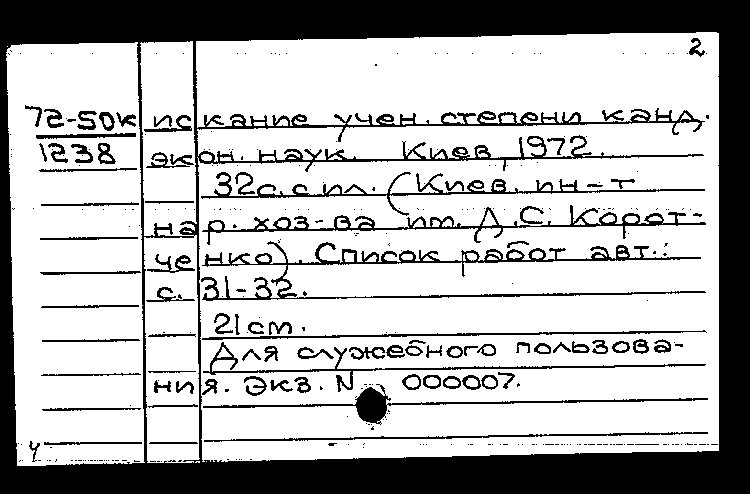 2
72-50к искание учен. степени канд.
1238 экон. наук. Киев, 1972.
32с. с ил. (Киев. ин-т
нар. хоз-ва им. Д.С. Корот-
ченко). Список работ авт.:
с. 31-32.
21 см.
Для служебного пользова-
ния. Экз. N 000007.